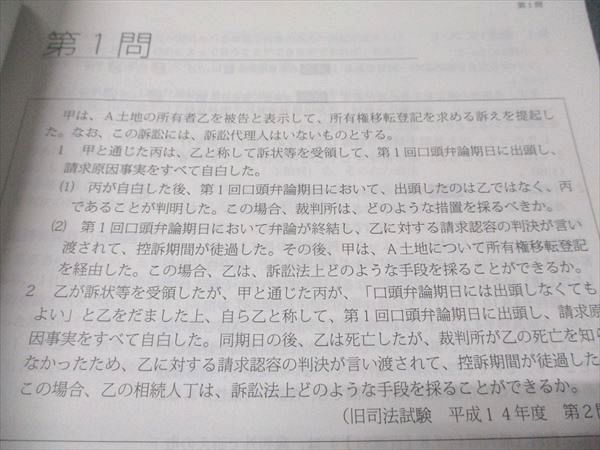 第1問
第1問
甲は、A土地の所有者乙を被告と表示して、所有権移転登記を求める訴えを提起し
た。なお、この訴訟には、訴訟代理人はいないものとする。
1 甲と通じた丙は、乙と称して訴状等を受領して、第1回口頭弁論期日に出頭し、
請求原因事実をすべて自白した。
(1) 丙が自白した後、第1回口頭弁論期日において、出頭したのは乙ではなく、丙
であることが判明した。この場合、裁判所は、どのような措置を採るべきか。
(2) 第1回口頭弁論期日において弁論が終結し、乙に対する請求認容の判決が言い
渡されて、控訴期間が徒過した。その後、甲は、A土地について所有権移転登記
を経由した。この場合、乙は、訴訟法上どのような手段を採ることができるか。
2 乙が訴状等を受領したが、甲と通じた丙が、「口頭弁論期日には出頭しなくても
よい」と乙をだました上、自ら乙と称して、第1回口頭弁論期日に出頭し、請求原
因事実をすべて自白した。同期日の後、乙は死亡したが、裁判所が乙の死亡を知ら
なかったため、乙に対する請求認容の判決が言い渡されて、控訴期間が徒過した
この場合、乙の相続人丁は、訴訟法上どのような手段を採ることができるか。
(旧司法試験 平成14年度 第2問